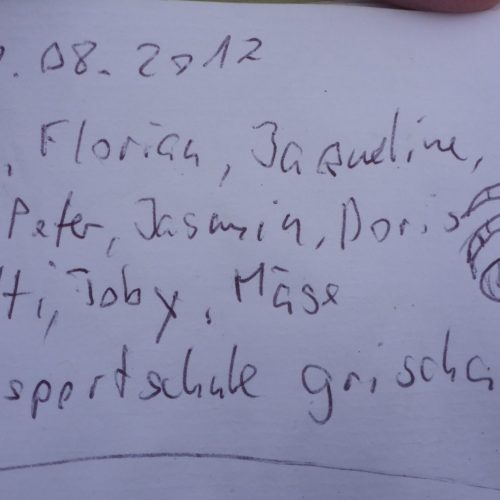 .08.2012
, Florian, Jaqueline,
Peter, Jasmin, Doris
tti, Toby, Mäse
sportschule grischa